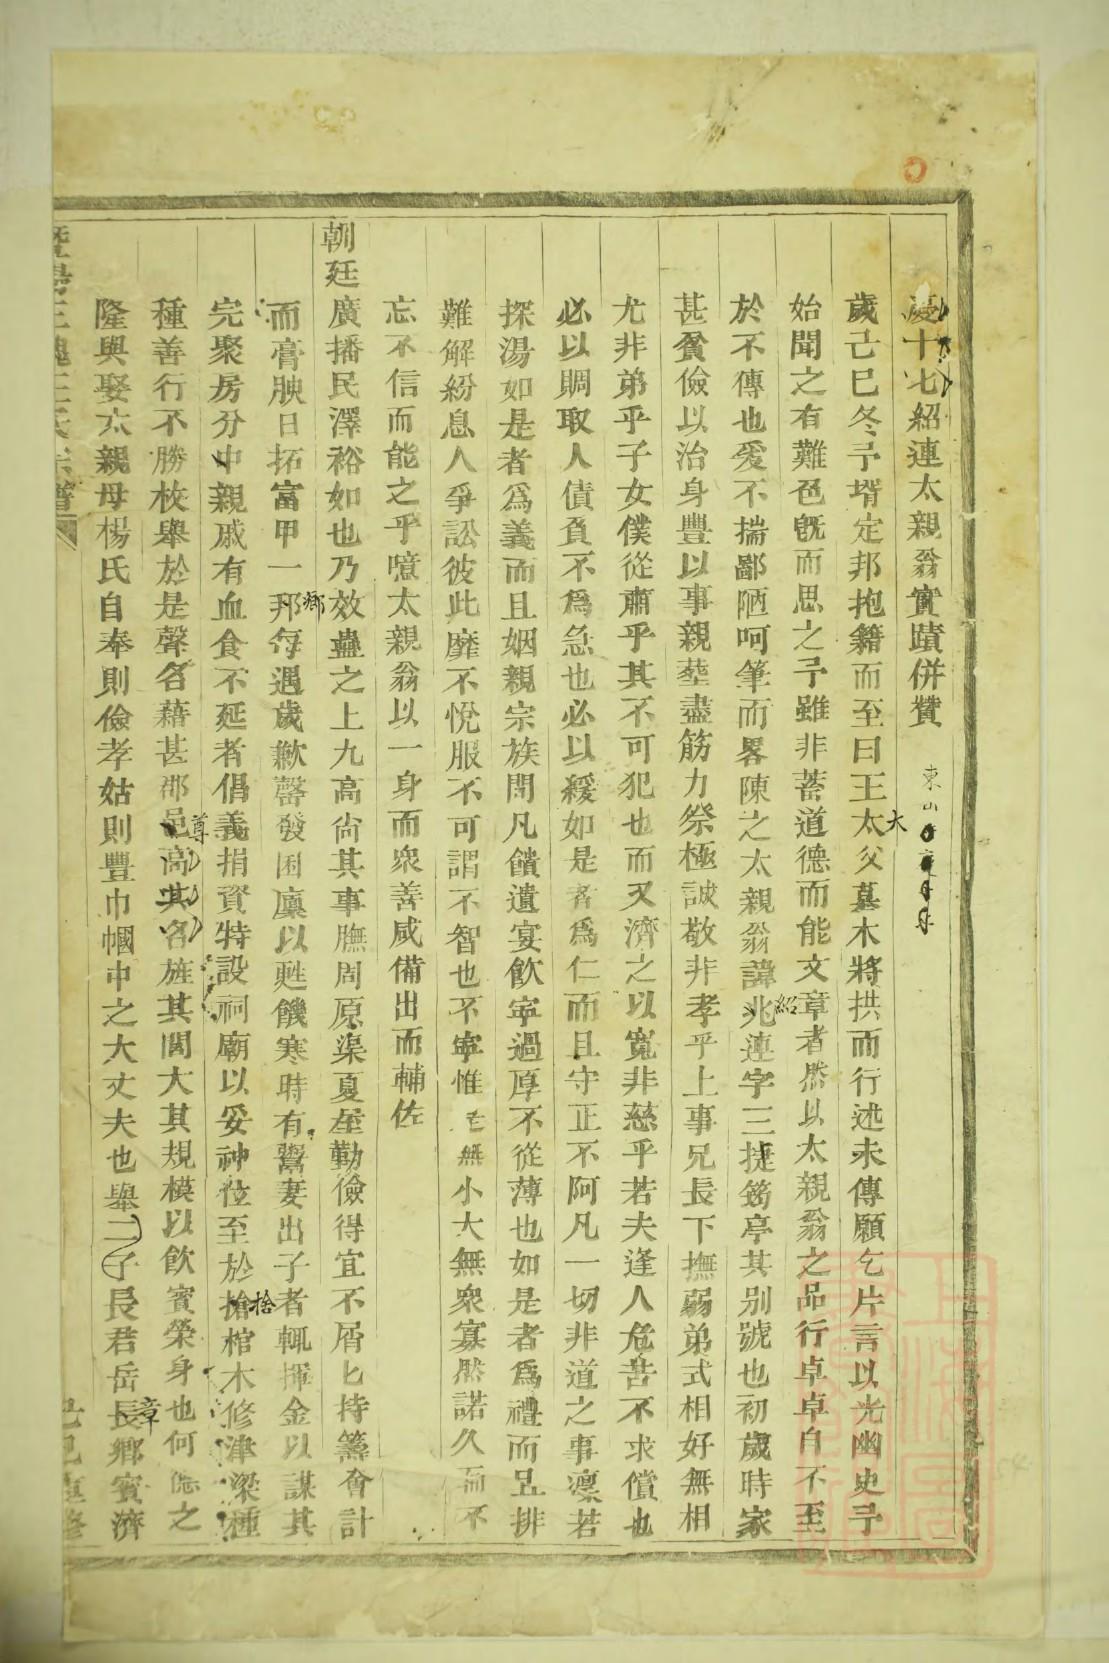 慶十七紹連太親翁實蹟併贊 東山
歲己巳冬予壻定邦抱籍而至曰王太父墓木將拱而行述未傳願乞片言以光幽史予
大
始聞之有難色旣而思之予雖非蓄道德而能文章者然以太親翁之品行卓卓自不至
於不傳也爰不揣鄙陋呵筆而畧陳之太親翁諱兆連字三捷筠亭其別號也初歲時家
紹
甚貧儉以治身豐以事親塟盡筋力祭極誠敬非孝乎上事兄長下撫弱弟式相好無相
尤非弟乎子女僕從肅乎其不可犯也而又濟之以寬非慈乎若夫逢人危苦不求償也
必以賙取人債負不爲急也必以緩如是者爲仁而且守正不阿凡一切非道之事凛若
探湯如是者爲義而且姻親宗族閒凡饋遺宴飮寜過厚不從薄也如是者爲禮而且排
難解紛息人爭訟彼此靡不悅服不可謂不智也不寜惟是無小大無衆寡然諾久而不
忘不信而能之乎噫太親翁以一身而衆善咸備出而輔佐
朝廷廣播民澤裕如也乃效蠱之上九高尙其事膴周原渠夏屋勤儉得宜不屑匕持籌會計
而膏腴日拓富甲一邦每遇歲歉罄發囷廪以甦饑寒時有鬻妻出子者輒揮金以謀其
鄉
完聚房分中親戚有血食不延者倡義捐資特設祠廟以妥神位至於搶棺木修津梁種
捨
種善行不勝枚舉於是聲名藉甚郡邑高其名旌其閭大其規模以飮賓榮身也何慊之
尊
隆與娶六親母楊氏自奉則儉孝姑則豐巾幗中之大丈夫也舉二子長君岳長鄉賓濟
章
己巳重修